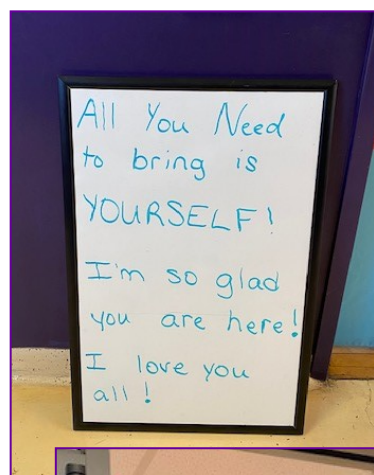 All You Need
to bring is
YOURSELF!
I'm so glad
you are here!
I love you
all!